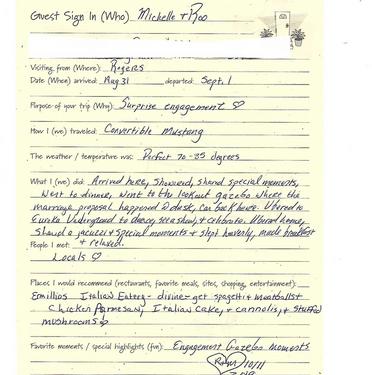 Guest Sign In (Who) Michelle + Roo
Visiting from (Where): Rogers
Date (When) arrived: Aug 31 departed: Sept. 1
Purpose of your trip (Why): Surprise engagement ♡
How I (we) traveled: Convertible Mustang
The weather / temperature was: Perfect 70-85 degrees
What I (we) did: Arrived here, Showered, shared special moments,
went to dinner, went to the lookout gazebo where the
marriage proposal happened @ dusk, came back home. Ubered to
Eureka Underground to dance, see a show, & celebrate. Ubered home,
Shared a jacuzzi & special moments & slept heavenly, made breakfast
People I met: + relaxed.
Locals ♡
Places I would recommend (restaurants, favorite meals, sites, shopping, entertainment):
Ermilios Italian Eatery - dinner get spagetti & meatballs
Chicken Parmesan, Italian Cake, & cannolis, & stuffed
mushrooms ♡
Favorite moments / special highlights (fun): Engagement Gazebo moments
R+M 10/11